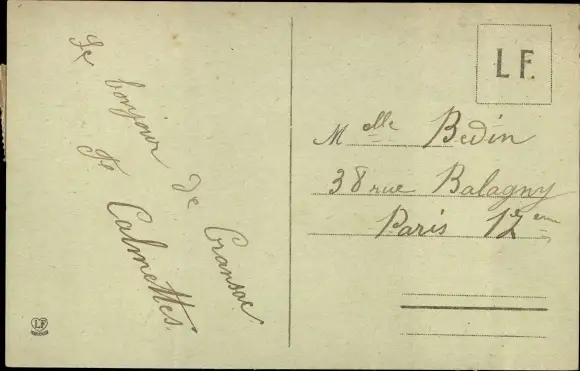 Le bonjour de Cransac
Fe Calmettes
L F.
Melle Bedin
38 rue Balagny
Paris 17eme
LF